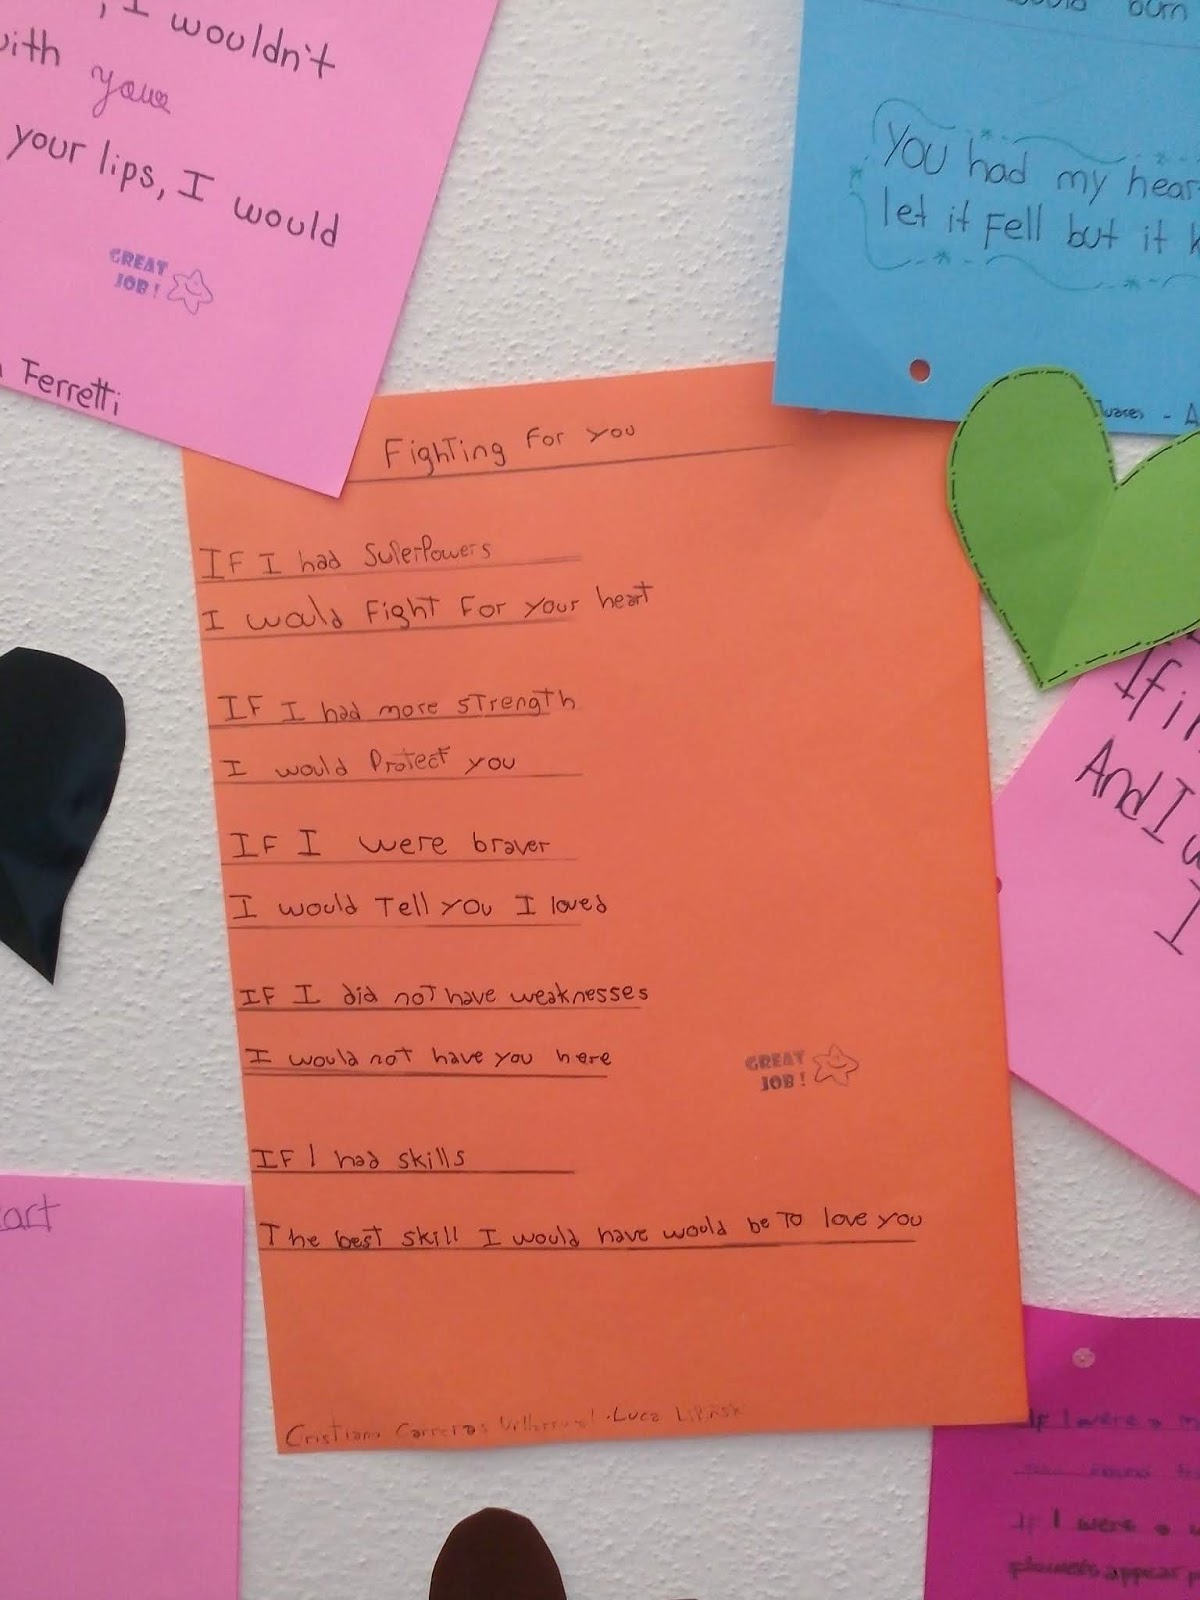 , I wouldn't
with your
your lips, I would
GREAT
JOB!
Ferretti
burn
You had my hear
let it Fell but it
Fighting For you
IF I had SuPerPowers
I would Fight For your heart
IF I had more strength
I would Protect you
IF I were braver
I would Tell you I loved
IF I did not have weaknesses
I would not have you here
GREAT
JOB!
IF I had skills
The best skill I would have would be To love you
Cristiano Carreras Luca
If i
And I
I
art
If I were a m
If I were a
flowers appear